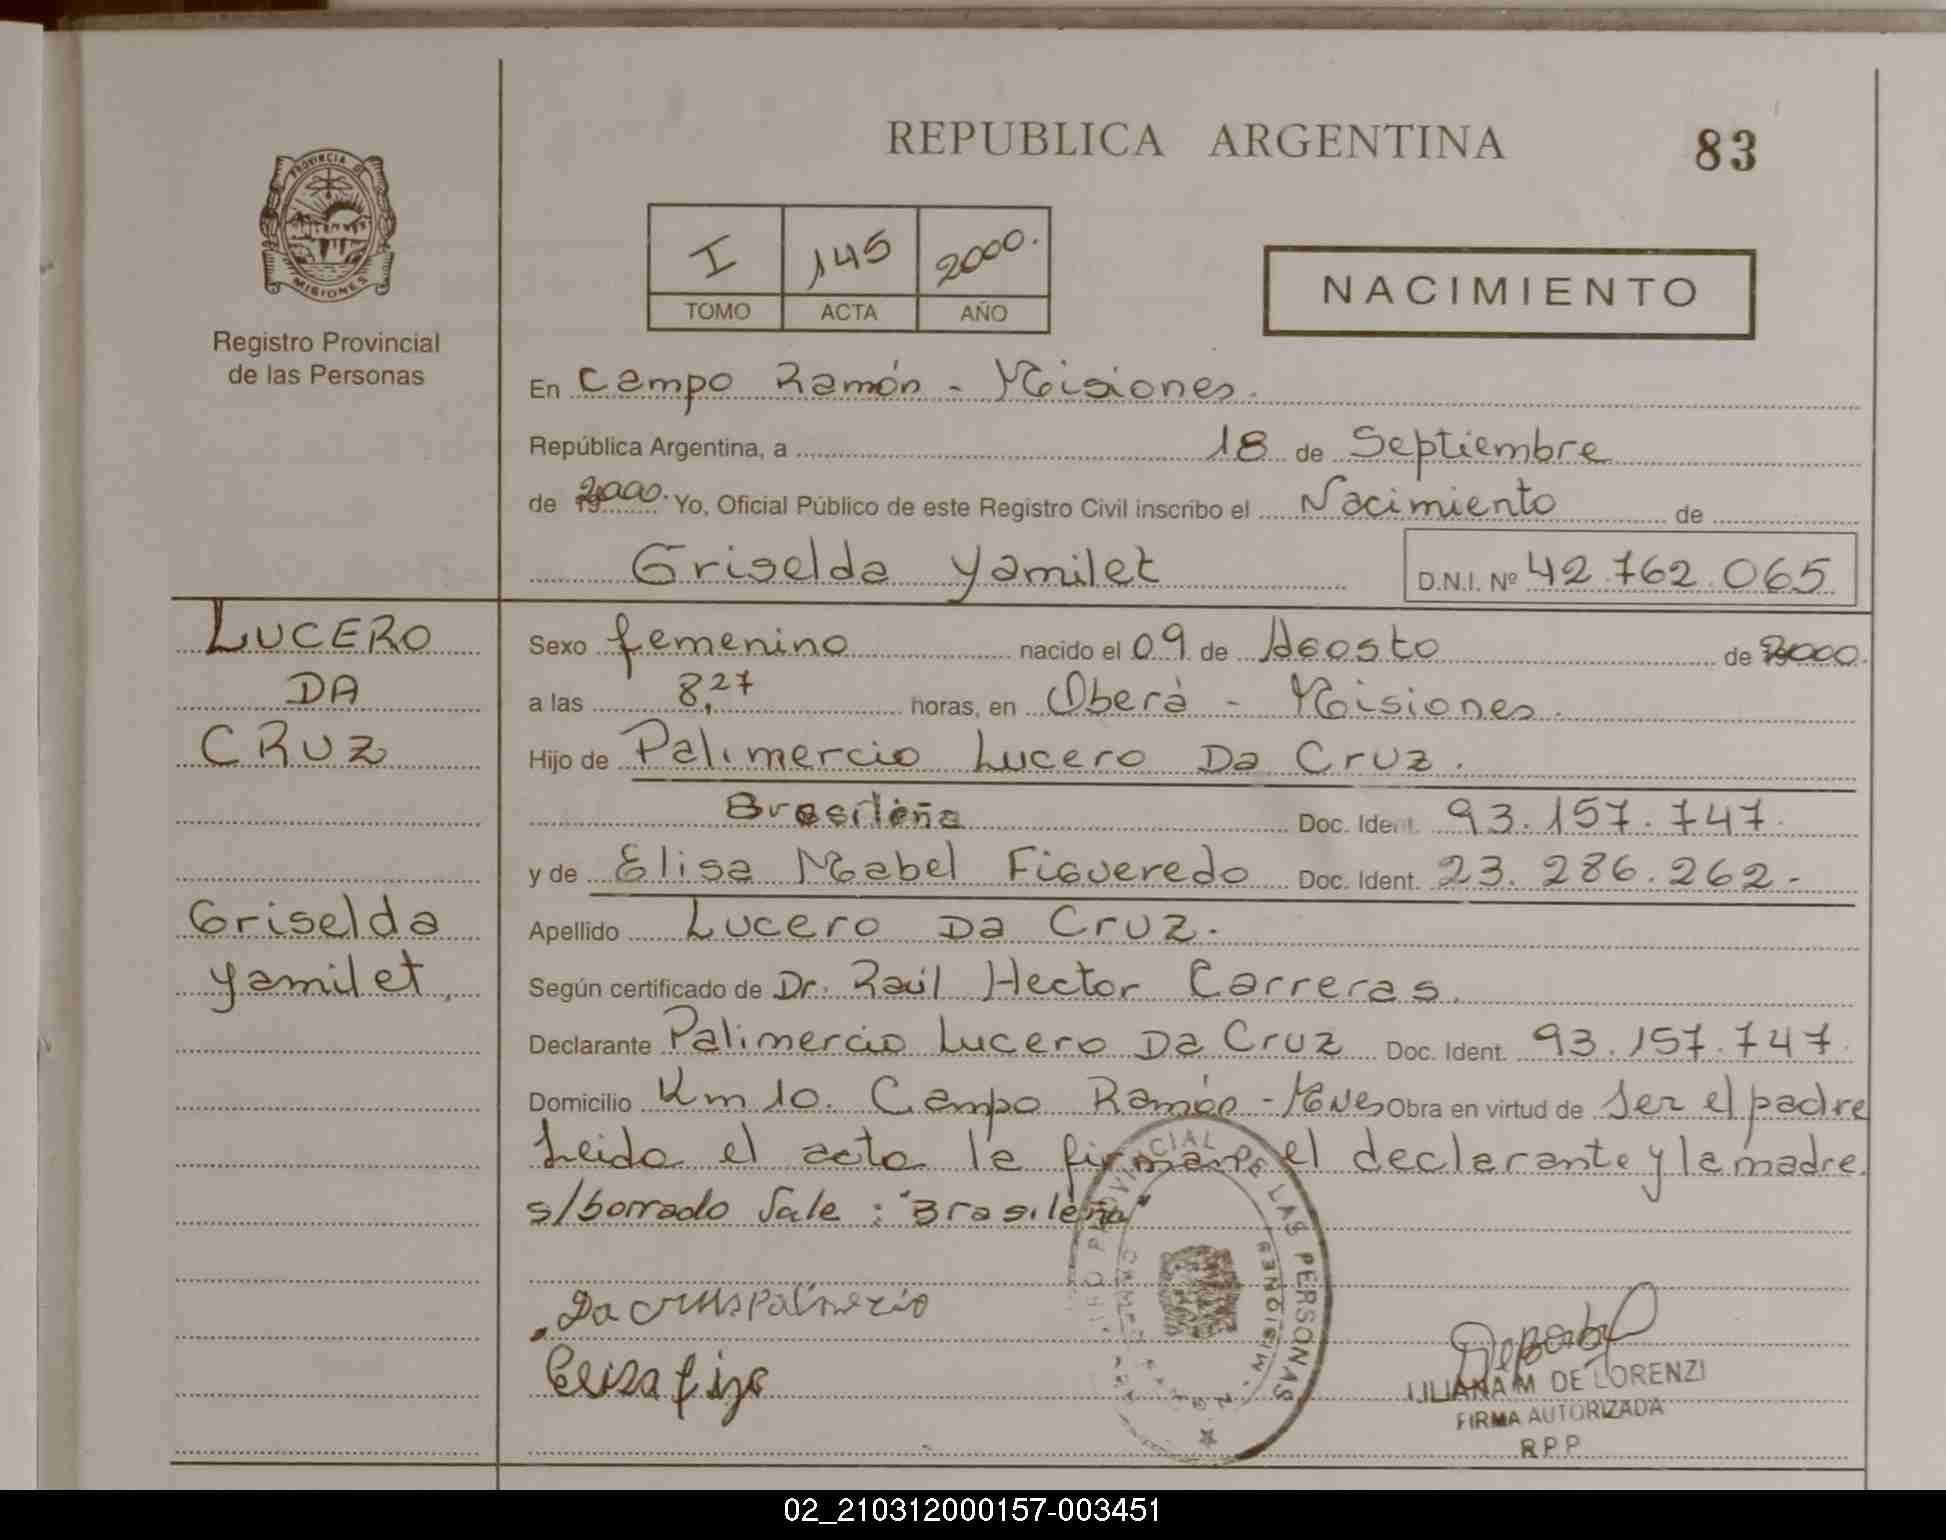 REPUBLICA ARGENTINA
83
PROVINCIA DE MISIONES
Registro Provincial
de las Personas
I 145 2000.
TOMO ACTA AÑO
NACIMIENTO
En Campo Ramón - Misiones.
República Argentina, a 18 de Septiembre
de 2000. Yo, Oficial Público de este Registro Civil inscribo el Nacimiento de
Griselda Yamilet D.N.I. Nº 42.762.065
LUCERO
DA
CRUZ
Griselda
Yamilet.
Sexo femenino nacido el 09 de Agosto de 2000.
a las 8,27 horas, en Oberá - Misiones.
Hijo de Palimercio Lucero Da Cruz.
Brasileña Doc. Ident. 93.157.747.
y de Elisa Mabel Figueredo Doc. Ident. 23.286.262-
Apellido Lucero Da Cruz.
Según certificado de Dr. Raúl Hector Carreras.
Declarante Palimercio Lucero Da Cruz Doc. Ident. 93.157.747.
Domicilio Km 10. Campo Ramón - Mnes Obra en virtud de Ser el padre
Leida el acta la firman el declarante y la madre.
s/borrado Vale: "Brasileña"
PROVINCIAL DE LAS PERSONAS
MISIONES
Da Cruz Palimercio
Elisa figo
LILIANA M DE LORENZI
FIRMA AUTORIZADA
R.P.P.
02_210312000157-003451